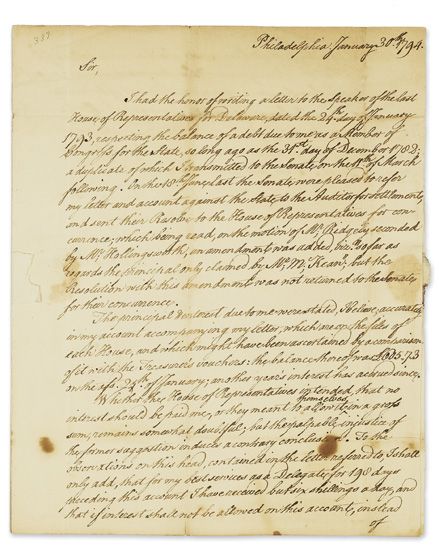 339
Philadelphia January 30th 1794.
Sir,
I had the honor of writing a letter to the Speaker of the last
House of Representatives for Delaware, dated the 24th day of January
1793, respecting the balance of a debt due to me as a Member of
Congress for the State, so long ago as the 31st day of December 1782:
a duplicate of which I transmitted to the Senate on the of March
following. In the of June last the Senate were pleased to refer
my letter and account against the State, to the Auditor for settlement,
and sent their Resolve to the House of Representatives for con-
currence; which being read, on the motion of Mr. Ridgely seconded
by Mr. Hollingsworth, an amendment was added, viz. "so far as
regards the principal only claimed by Mr. McKean"; but the
Resolution with this amendment was not returned to the Senate
for their concurrence.
The principal & interest due to me were stated, I believe, accurately
in my account accompanying my letter, which are on the files of
each House, and which might have been ascertained by a comparison
of it with the Treasurer's vouchers: the balance thereof was
on the afsd. 24th of January; another year's interest has accrued since.
Whether the House of Representatives intended, that no
interest should be paid me, or they meant to themselves in a gross
sum, remains somewhat doubtful; but the palpable injustice of
the former suggestion induces a contrary conclusion. To the
observations on this head, contained in the letter referred to I shall
only add, that for my best services as a Delegate for 198 days
preceding this account I have received but six shillings a day, and
that if interest shall not be allowed on this account, instead
of